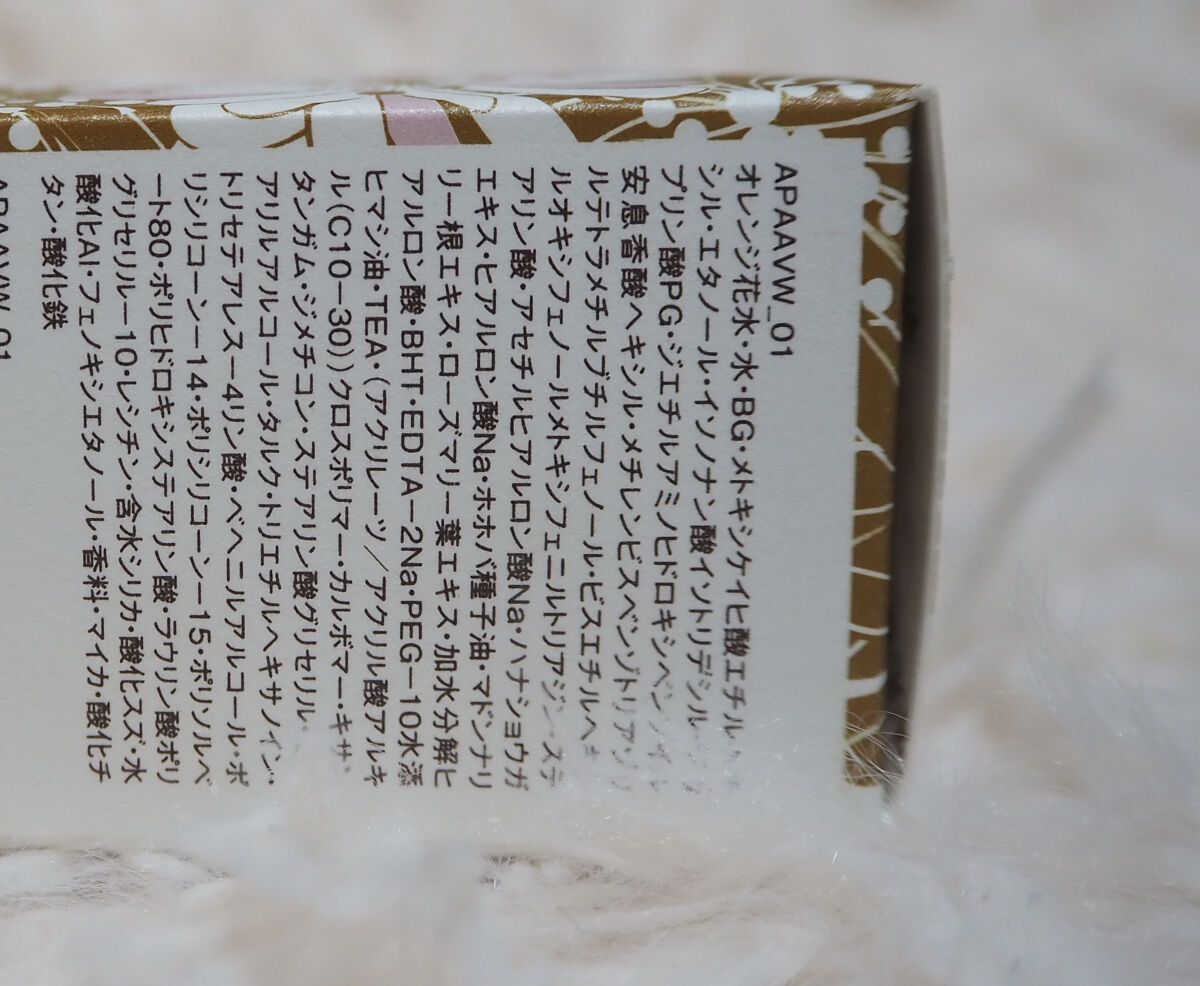 APAAVW_01
オレンジ花水・水・BG・メトキシケイヒ酸エチル
シル・エタノール・イソノナン酸イソトリデシル
プリン酸PG・ジエチルアミノヒドロキシベン
安息香酸ヘキシル・メチレンビスベンゾトリアゾリ
ルテトラメチルブチルフェノール・ビスエチルヘキ
ルオキシフェノールメトキシフェニルトリアジン・ステ
アリン酸・アセチルヒアルロン酸Na・ハナショウガ
エキス・ヒアルロン酸Na・ホホバ種子油・マドンナリ
リー根エキス・ローズマリー葉エキス・加水分解ヒ
アルロン酸・BHT・EDTA−2Na・PEG−10水添
ヒマシ油・TEA・(アクリレーツ/アクリル酸アルキ
ル(C10−30))クロスポリマー・カルボマー・キサン
タンガム・ジメチコン・ステアリン酸グリセリル・
アリルアルコール・タルク・トリエチルヘキサノイン・
トリセテアレス−4リン酸・ベヘニルアルコール・ポ
リシリコーン−14・ポリシリコーン−15・ポリソルベ
ート80・ポリヒドロキシステアリン酸・ラウリン酸ポリ
グリセリル−10・レシチン・含水シリカ・酸化スズ・水
酸化Al・フェノキシエタノール・香料・マイカ・酸化チ
タン・酸化鉄
APAAVW_01